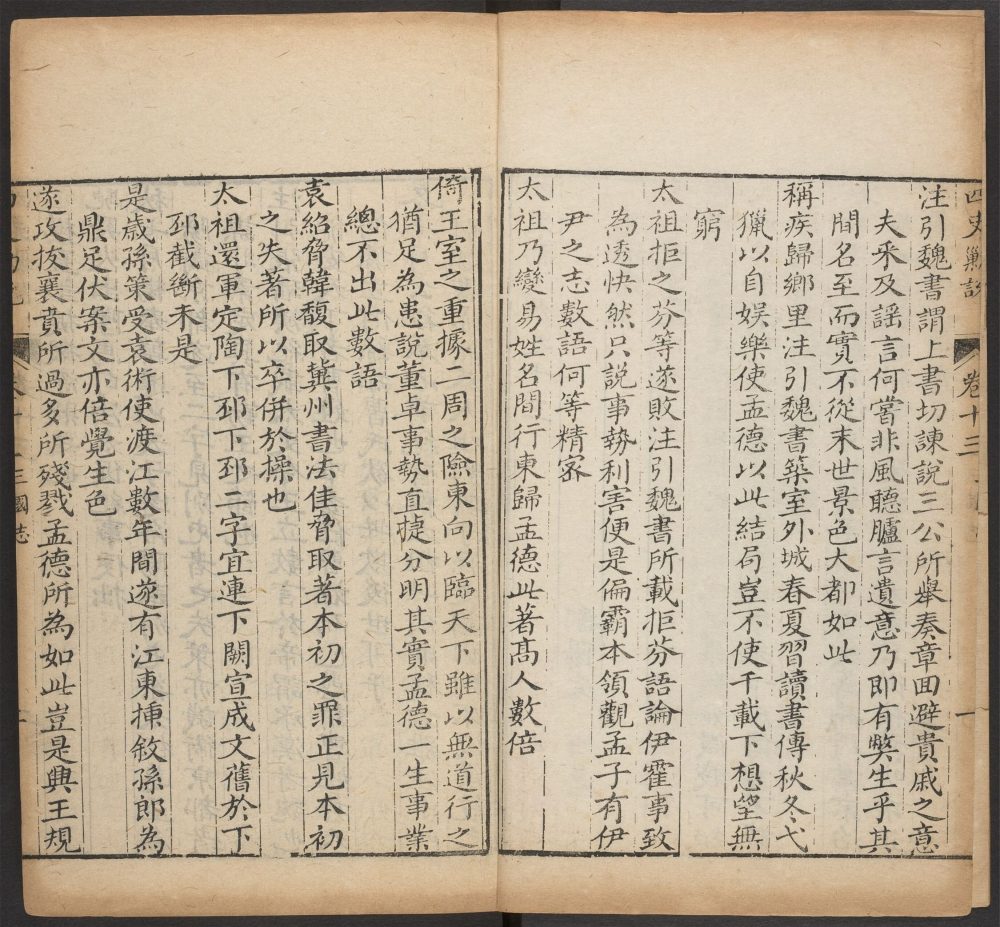 四史勦說
卷十三
一
注引魏書謂上書切諫說三公所舉奏章回避貴戚之意
夫采及謡言何嘗非風聽臚言遺意乃即有獘生乎其
間名至而實不從末世景色大都如此
稱疾歸鄉里注引魏書築室外城春夏習讀書傳秋冬弋
獵以自娱樂使孟德以此結局豈不使千載下想望無
窮
太祖拒之芬等遂敗注引魏書所載拒芬語論伊霍事致
為透快然只說事勢利害便是偏霸本領觀孟子有伊
尹之志數語何等精密
太祖乃變易姓名間行東歸孟德此著髙人數倍
倚王室之重據二周之險東向以臨天下雖以無道行之
猶足為患說董卓事勢直捷分明其實孟德一生事業
總不出此數語
袁紹脅韓馥取冀州書法佳脅取著本初之罪正見本初
之失著所以卒併於操也
太祖還軍定陶下邳下邳二字宜連下闕宣成文舊於下
邳截斷未是
是歲孫策受袁術使渡江數年間遂有江東揷敘孫郎為
鼎足伏案文亦倍覺生色
遂攻拔襄賁所過多所殘戮孟德所為如此豈是興王規
三國志